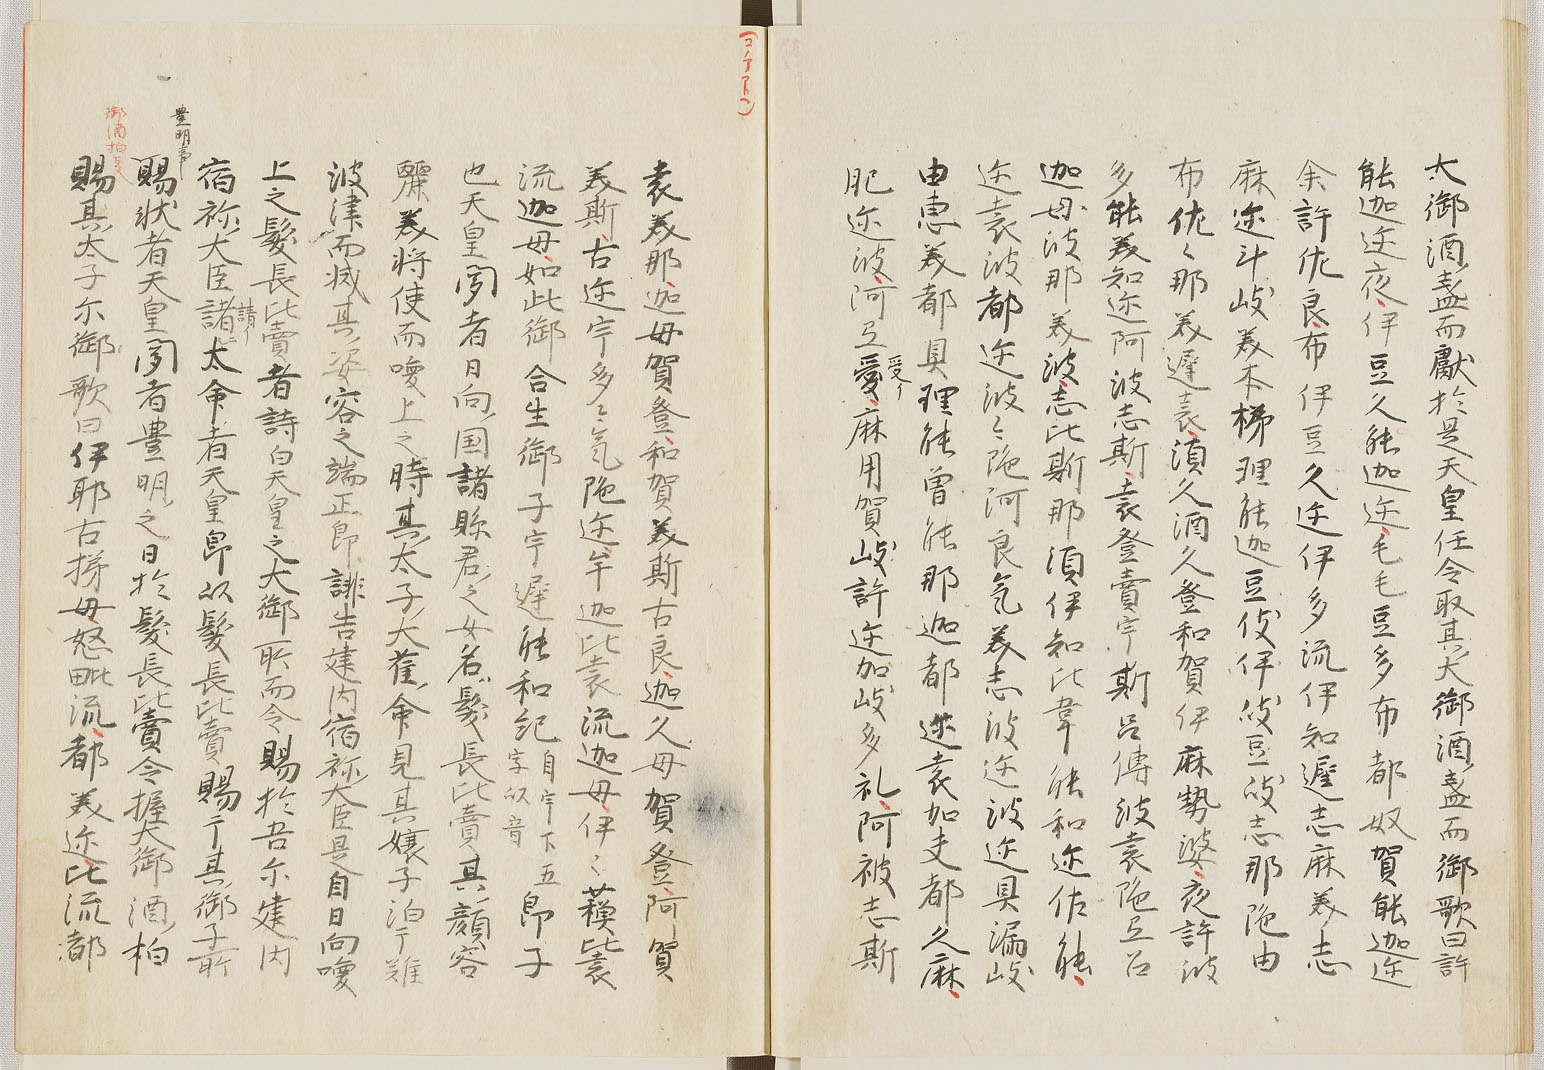 大御酒盞而獻於是天皇任令取其大御酒盞而御歌曰許
能迦迩夜伊豆久能迦迩毛毛豆多布都奴賀能迦迩
余許佐良布伊豆久迩伊多流伊知遅志麻美志
麻迩斗岐美本梯理能迦豆伎伊岐豆岐志那陁由
布佐々那美遅袁須久酒久登和賀伊麻勢婆夜許波
多能美知迩阿波志斯袁登賣宇斯呂傳波袁陁弖呂
迦母波那美波志比斯那須伊知比韋能和迩佐能
迩袁波都迩波々陁阿良氣美志波迩波迩具漏岐
由恵美都具理能曽能那迦都迩袁加夫都久麻
肥迩波阿弖愛麻用賀岐許迩加岐多礼阿被志斯
受イ
(コノアトン)
袁美那迦母賀登和賀美斯古良迦久母賀登阿賀
美斯古迩宇多々氣陁迩牟迦比袁流迦母伊々蘓比袁
流迦母如此御合生御子宇遅能和紀自宇下五字以音即子
也天皇聞者日向国諸縣君之女名髮長比賣其顔容
麗美將使而喚上之時其太子大雀命見其嬢子泊于難
波津而感其姿容之端正即誂告建内宿祢大臣是自日向喚
上之髮長比賣者詩白天皇之大御所而令賜於吾尓建内
請イ
宿祢大臣諸太命者天皇即以髮長比賣賜于其御子所
豊明事
賜状者天皇聞者豊明之日於髮長比賣令握大御酒柏
御酒柏事
賜其太子尓御歌曰伊耶古揥母怒毗流都美迩比流都